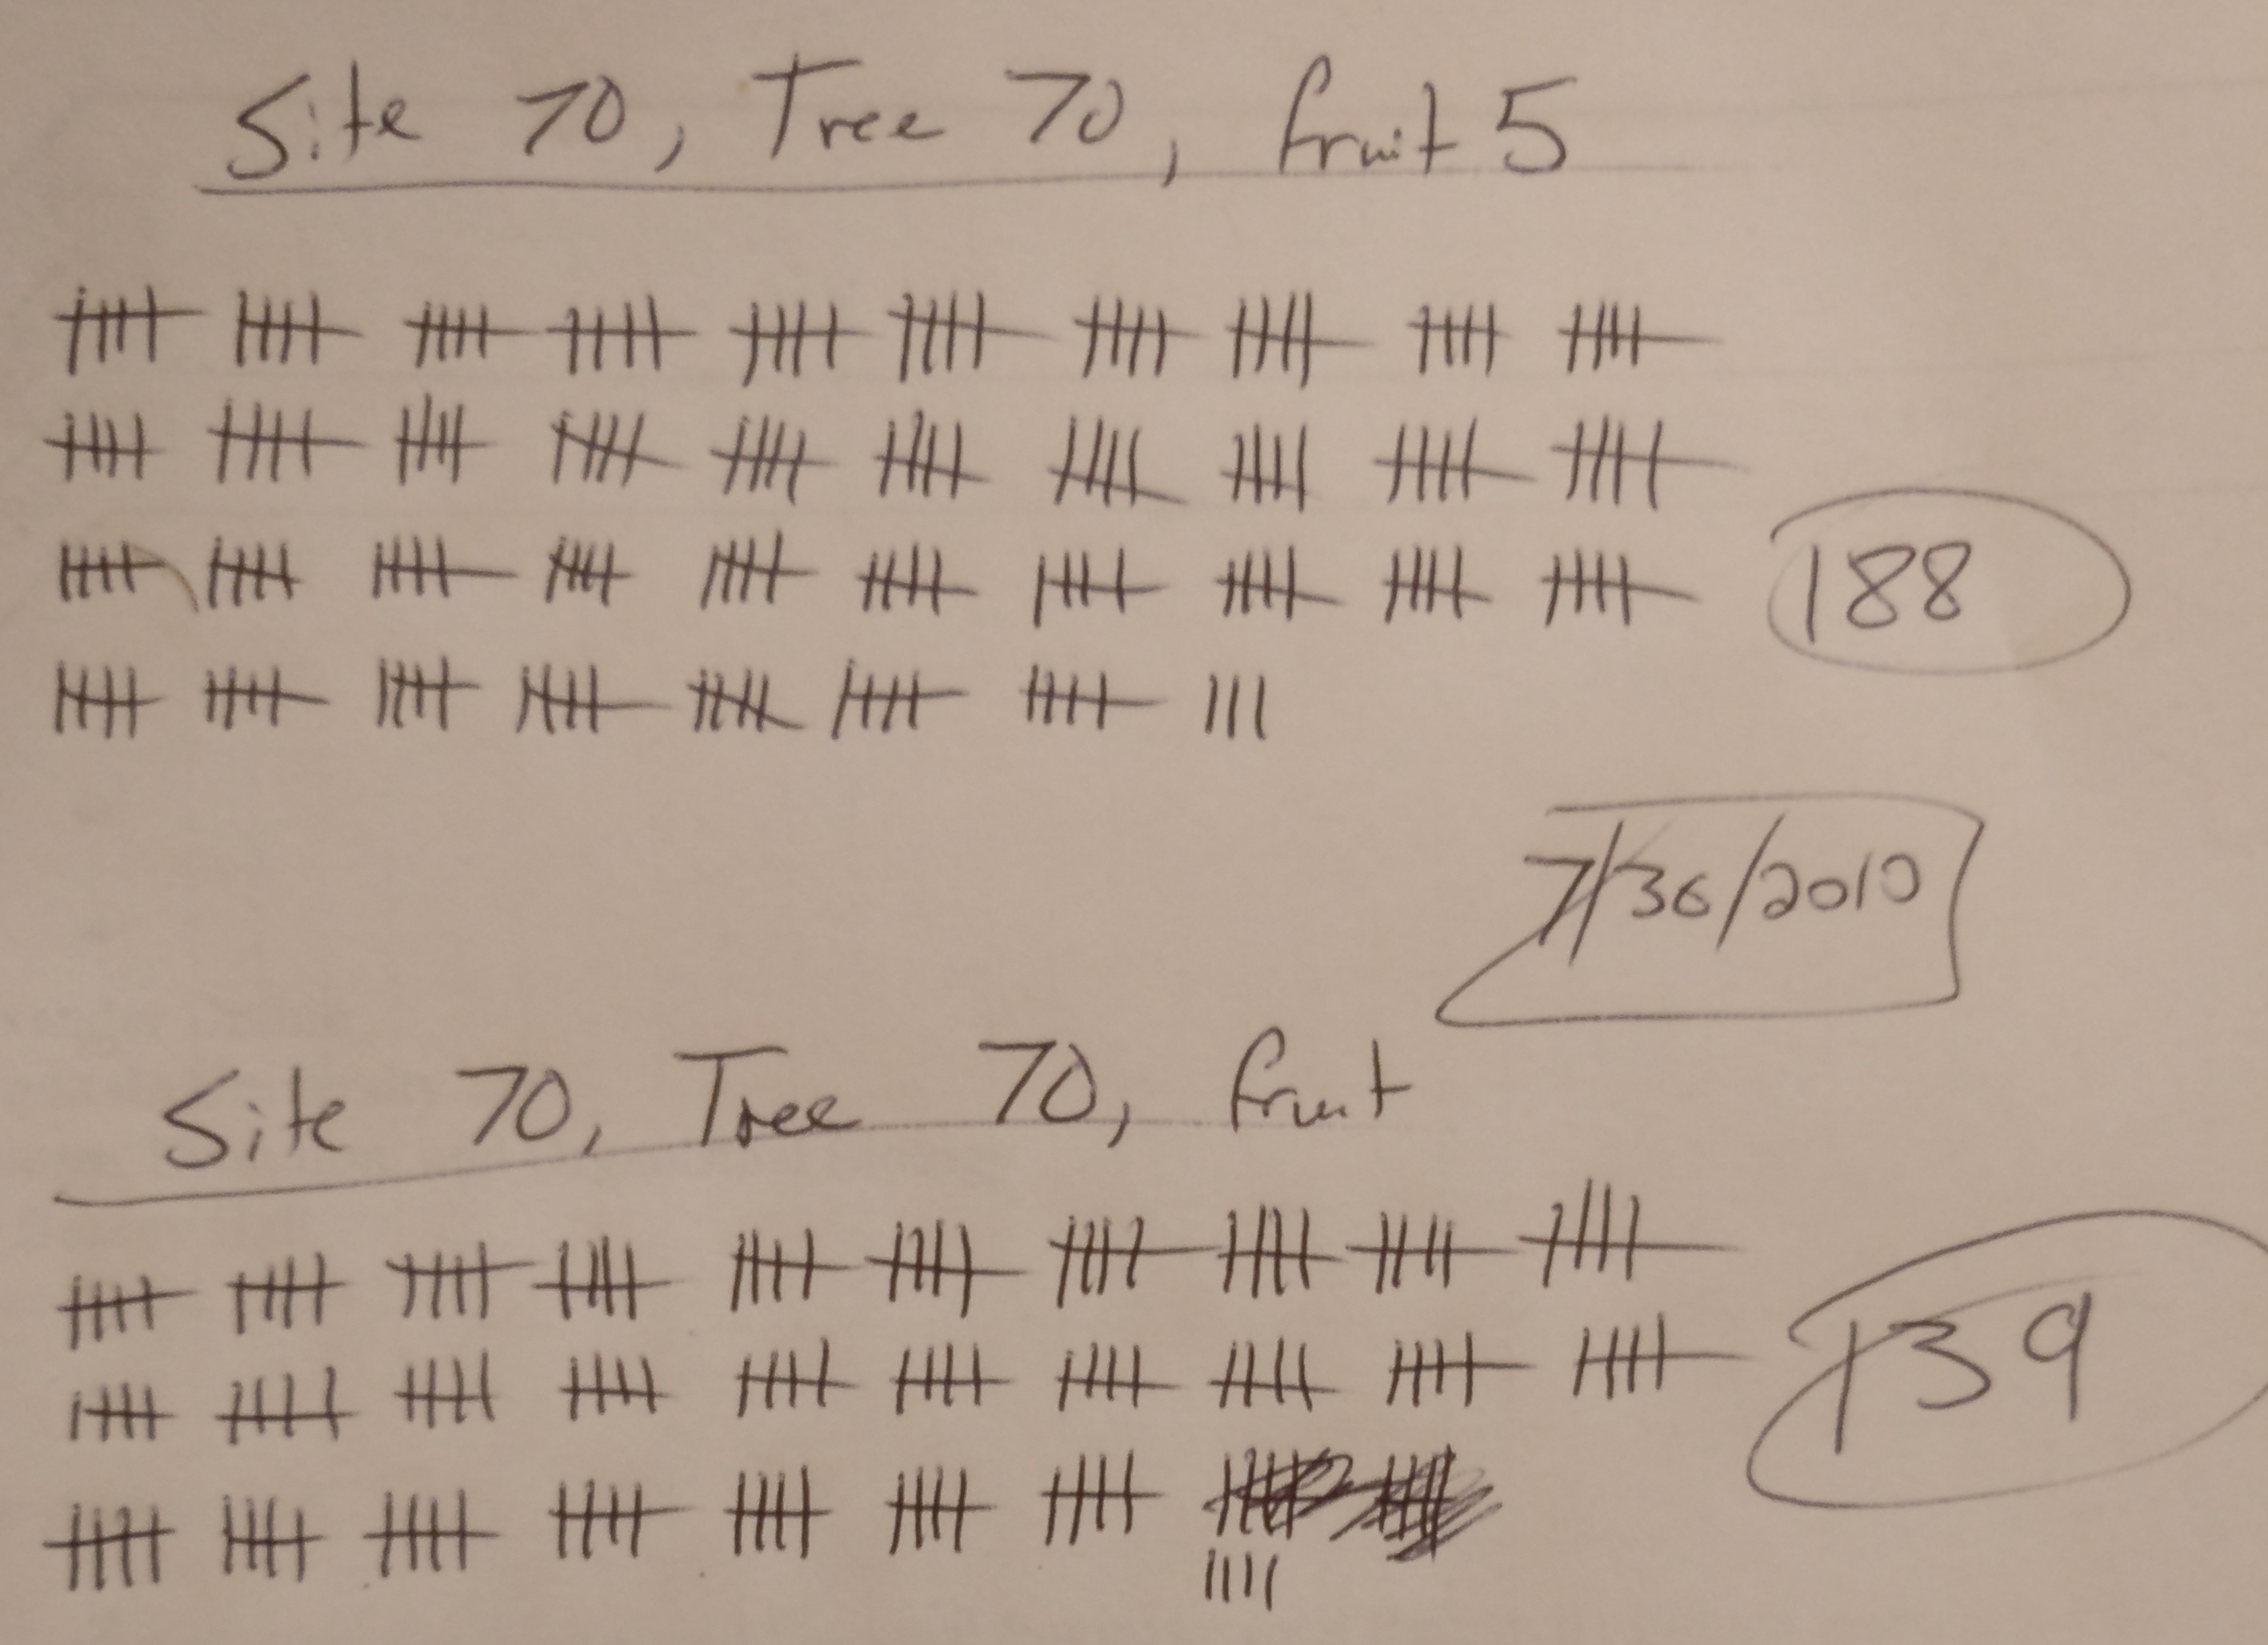 Site 70, Tree 70, fruit 5
188
7/30/2010
Site 70, Tree 70, fruit
139